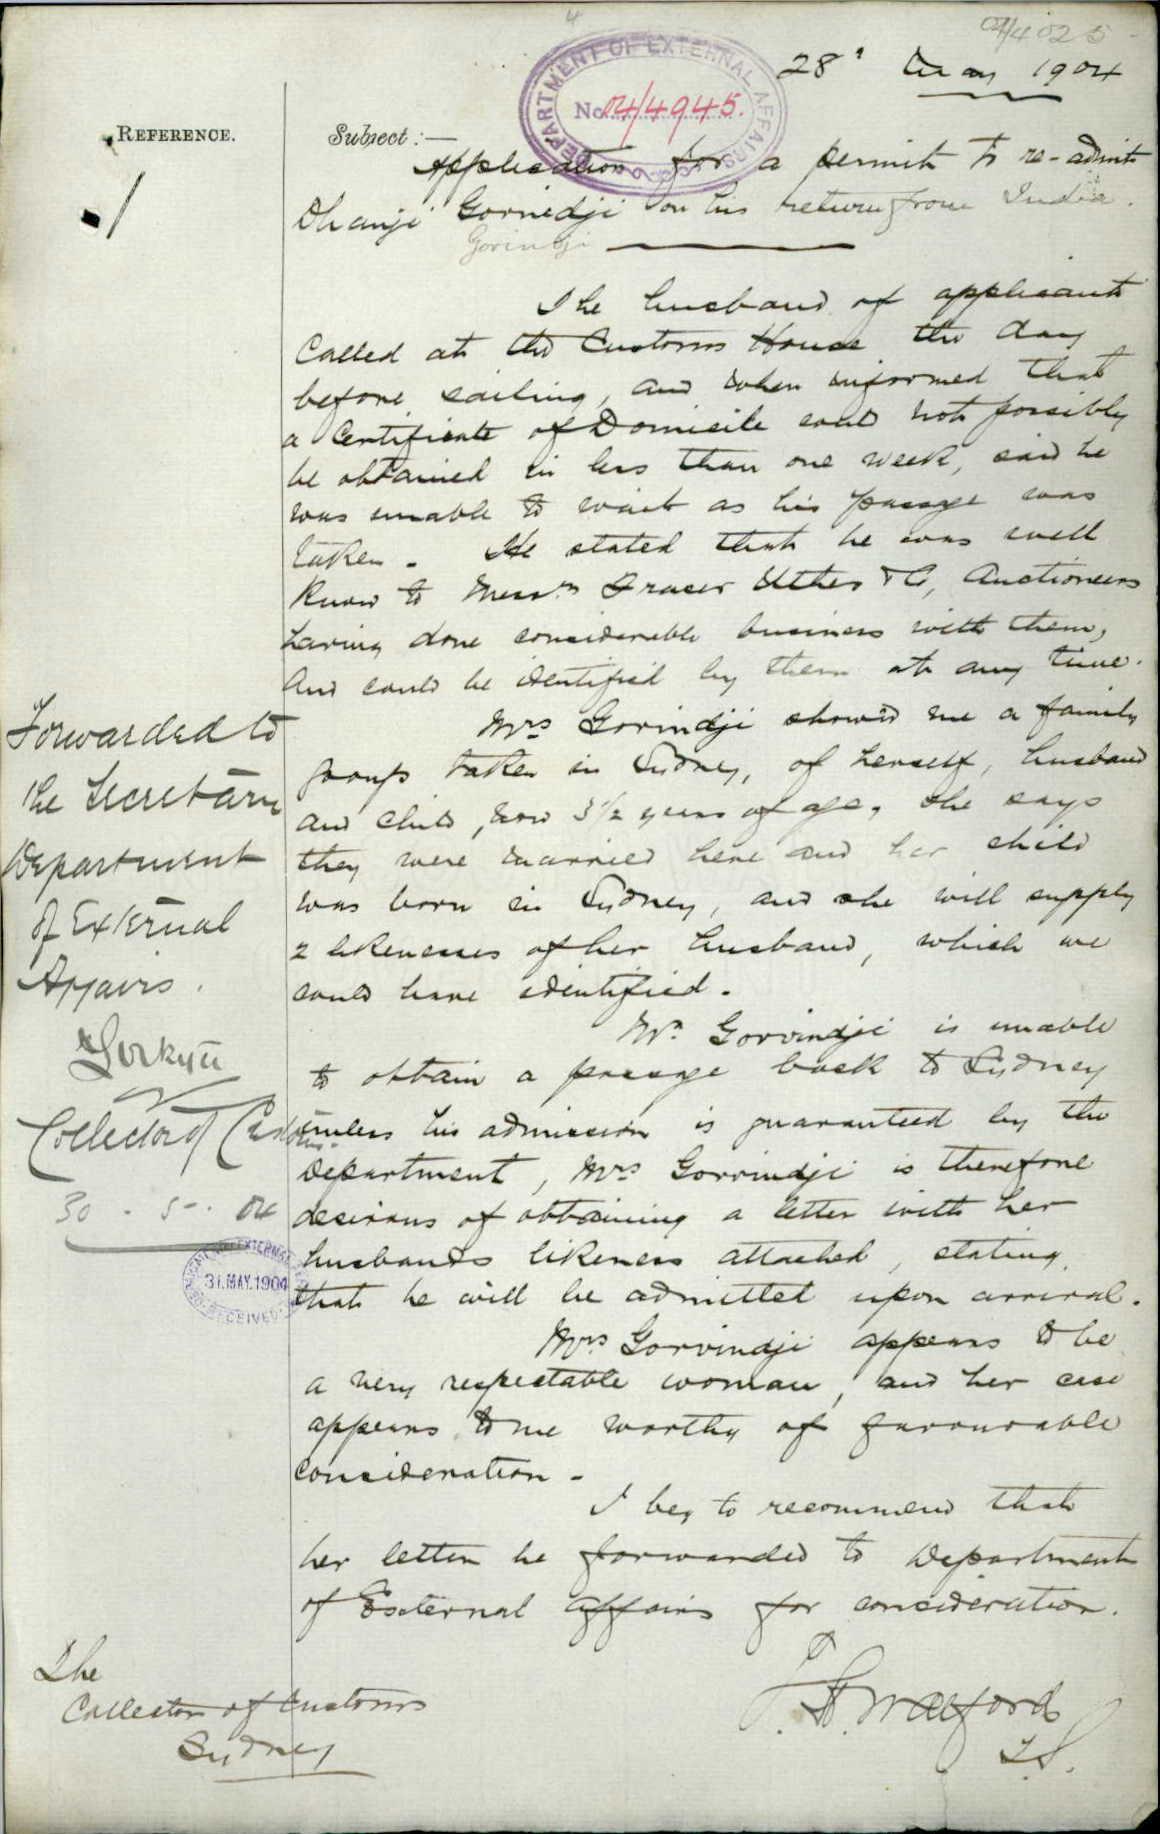 04/4025
28 May 1904
DEPARTMENT OF EXTERNAL AFFAIRS
No. 04/4945.
REFERENCE.
Subject:—
Application for a permit to re-admit
Dhanji Gorvindji on his return from India.
Govindji
The husband of applicant
called at the Customs House the day
before sailing, and when informed that
a Certificate of Domicile could not possibly
be obtained in less than one week, said he
was unable to wait as his passage was
taken. He stated that he was well
know to Messrs Fraser Uther & Co, Auctioneers
having done considerable business with them,
and could be identified by them at any time.
Mrs Gorvindji showed me a family
group taken in Sydney, of herself, husband
and child, now 3½ years of age, she says
they were married here and her child
was born in Sydney, and she will supply
2 likenesses of her husband, which we
could have identified.
Mr. Gorvindji is unable
to obtain a passage back to Sydney
unless his admission is guaranteed by the
Department, Mrs Gorvindji is therefore
desirous of obtaining a letter with her
husbands likeness attached, stating
that he will be admitted upon arrival.
Mrs Gorvindji appears to be
a very respectable woman, and her case
appears to me worthy of favourable
consideration.
I beg to recommend that
her letter be forwarded to Department
of External Affairs for consideration.
T.
The
Collector of Customs
Sydney
Forwarded to
the Secretary
Department
of External
Affairs.
Collector of Customs.
30. 5. 04
31. MAY. 1904
RECEIVED